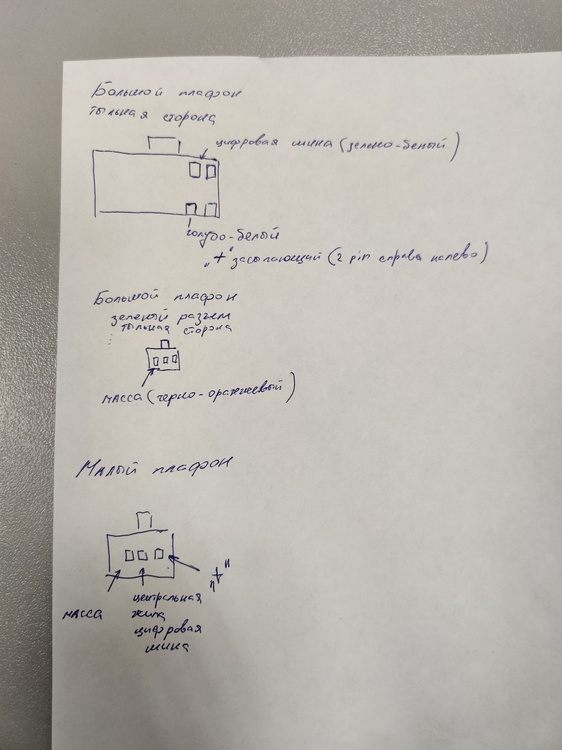 Большой плафон
тыльная сторона
цифровая шина (зелено-белый)
голубо-белый
"+" засыпающий (2 pin справа налево)
Большой плафон
зеленый разъем
тыльная сторона
масса (черно-оранжевый)
Малый плафон
"+"
масса
центральная
жила
цифровая
шина